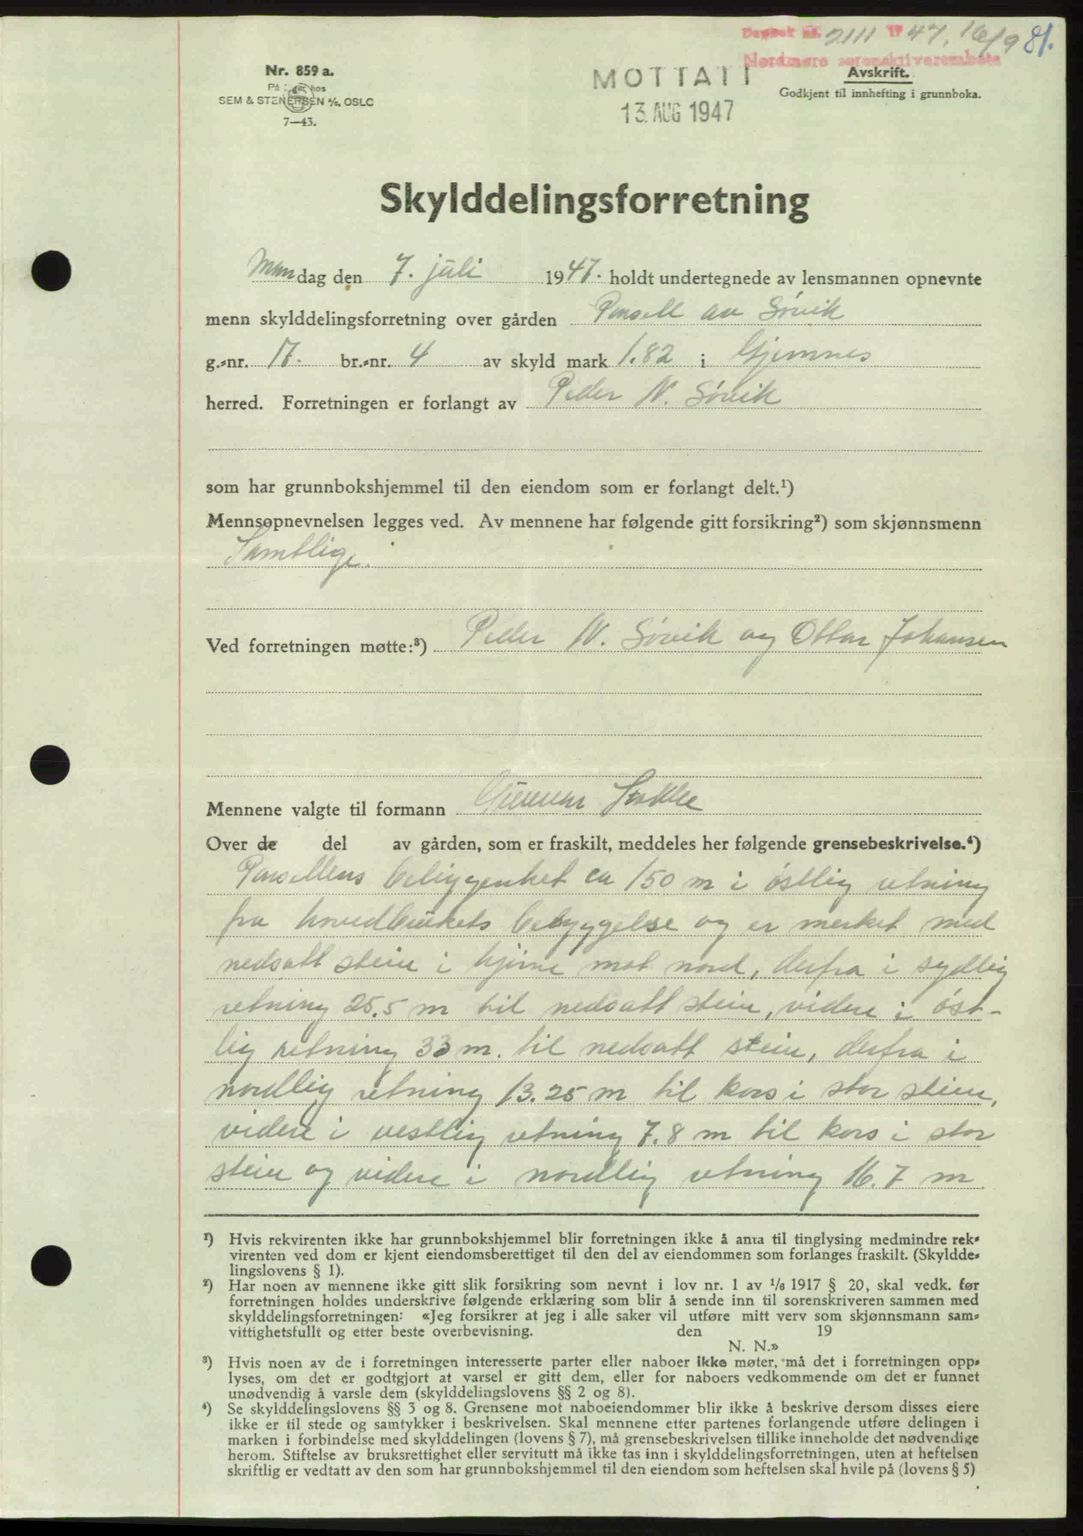 Dagbok nr. 2111 19 47, 16/9 81.
Nordmøre sorenskriverembete
Nr. 859 a.
På lager hos
SEM & STENERSEN A/S, OSLO
7—43.
MOTTATT
13. AUG 1947
Avskrift.
Godkjent til innhefting i grunnboka.
Skylddelingsforretning
Mandag den 7. juli 1947. holdt undertegnede av lensmannen opnevnte
menn skylddelingsforretning over gården Parsell av Søvik
g.-nr. 17. br.-nr. 4 av skyld mark 1.82 i Gjemnes
herred. Forretningen er forlangt av Peder N. Søvik
som har grunnbokshjemmel til den eiendom som er forlangt delt.¹)
Mennsopnevnelsen legges ved. Av mennene har følgende gitt forsikring²) som skjønnsmenn
Samtlige.
Ved forretningen møtte:³) Peder N. Søvik og Ottar Johansen
Mennene valgte til formann Gunnar
Over de del av gården, som er fraskilt, meddeles her følgende grensebeskrivelse.⁴)
Parsellens beliggenhet ca 150 m i østlig retning
fra hovedbrukets bebyggelse og er merket med
nedsatt stein i hjørne mot nord, derfra i sydlig
retning 25,5 m til nedsatt stein, videre i øst-
lig retning 33 m. til nedsatt stein, derfra i
nordlig retning 13.25 m til kors i stor stein,
videre i vestlig retning 7.8 m til kors i stor
stein og videre i nordlig retning 16.7 m
¹) Hvis rekvirenten ikke har grunnbokshjemmel blir forretningen ikke å anta til tinglysing medmindre rek-
virenten ved dom er kjent eiendomsberettiget til den del av eiendommen som forlanges fraskilt. (Skyldde-
lingslovens § 1).
²) Har noen av mennene ikke gitt slik forsikring som nevnt i lov nr. 1 av 1/6 1917 § 20, skal vedk. før
forretningen holdes underskrive følgende erklæring som blir å sende inn til sorenskriveren sammen med
skylddelingsforretningen: «Jeg forsikrer at jeg i alle saker vil utføre mitt verv som skjønnsmann sam-
vittighetsfullt og etter beste overbevisning. den 19
N. N.»
³) Hvis noen av de i forretningen interesserte parter eller naboer ikke møter, må det i forretningen opp-
lyses, om det er godtgjort at varsel er gitt dem, eller for naboers vedkommende om det er funnet
unødvendig å varsle dem (skylddelingslovens §§ 2 og 8).
⁴) Se skylddelingslovens §§ 3 og 8. Grensene mot naboeiendommer blir ikke å beskrive dersom disses eiere
ikke er til stede og samtykker i beskrivelsen. Skal mennene etter partenes forlangende utføre delingen i
marken i forbindelse med skylddelingen (lovens § 7), må grensebeskrivelsen tillike inneholde det nødvendige
herom. Stiftelse av bruksrettighet eller servitutt må ikke tas inn i skylddelingsforretningen, uten at heftelsen
skriftlig er vedtatt av den som har grunnbokshjemmel til den eiendom som heftelsen skal hvile på (lovens § 5)